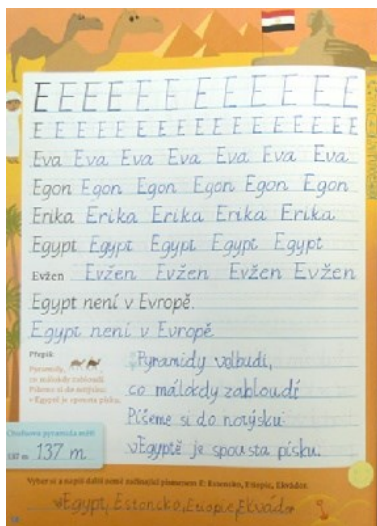 E E E E E E E E E E E E
E E E E E E E E E E E E E E E E
Eva Eva Eva Eva Eva Eva Eva
Egon Egon Egon Egon Egon Egon
Erika Erika Erika Erika Erika
Egypt Egypt Egypt Egypt Egypt
Evžen Evžen Evžen Evžen Evžen
Egypt není v Evropě.
Egypt není v Evropě
Přepiš
Pyramidy,
co málokdy zabloudí.
Píšeme si do notýsku:
v Egyptě je spousta písku.
Pyramidy velbudi,
co málokdy zabloudí
Píšeme si do notýsku
vEgyptě je spousta písku.
Cheopsova pyramida měří
137 m 137 m
Vyber si a napiš další země začínající písmenem E: Estonsko, Etiopie, Ekvádor.
Egypt, Estonsko, Etiopie, Ekvádor